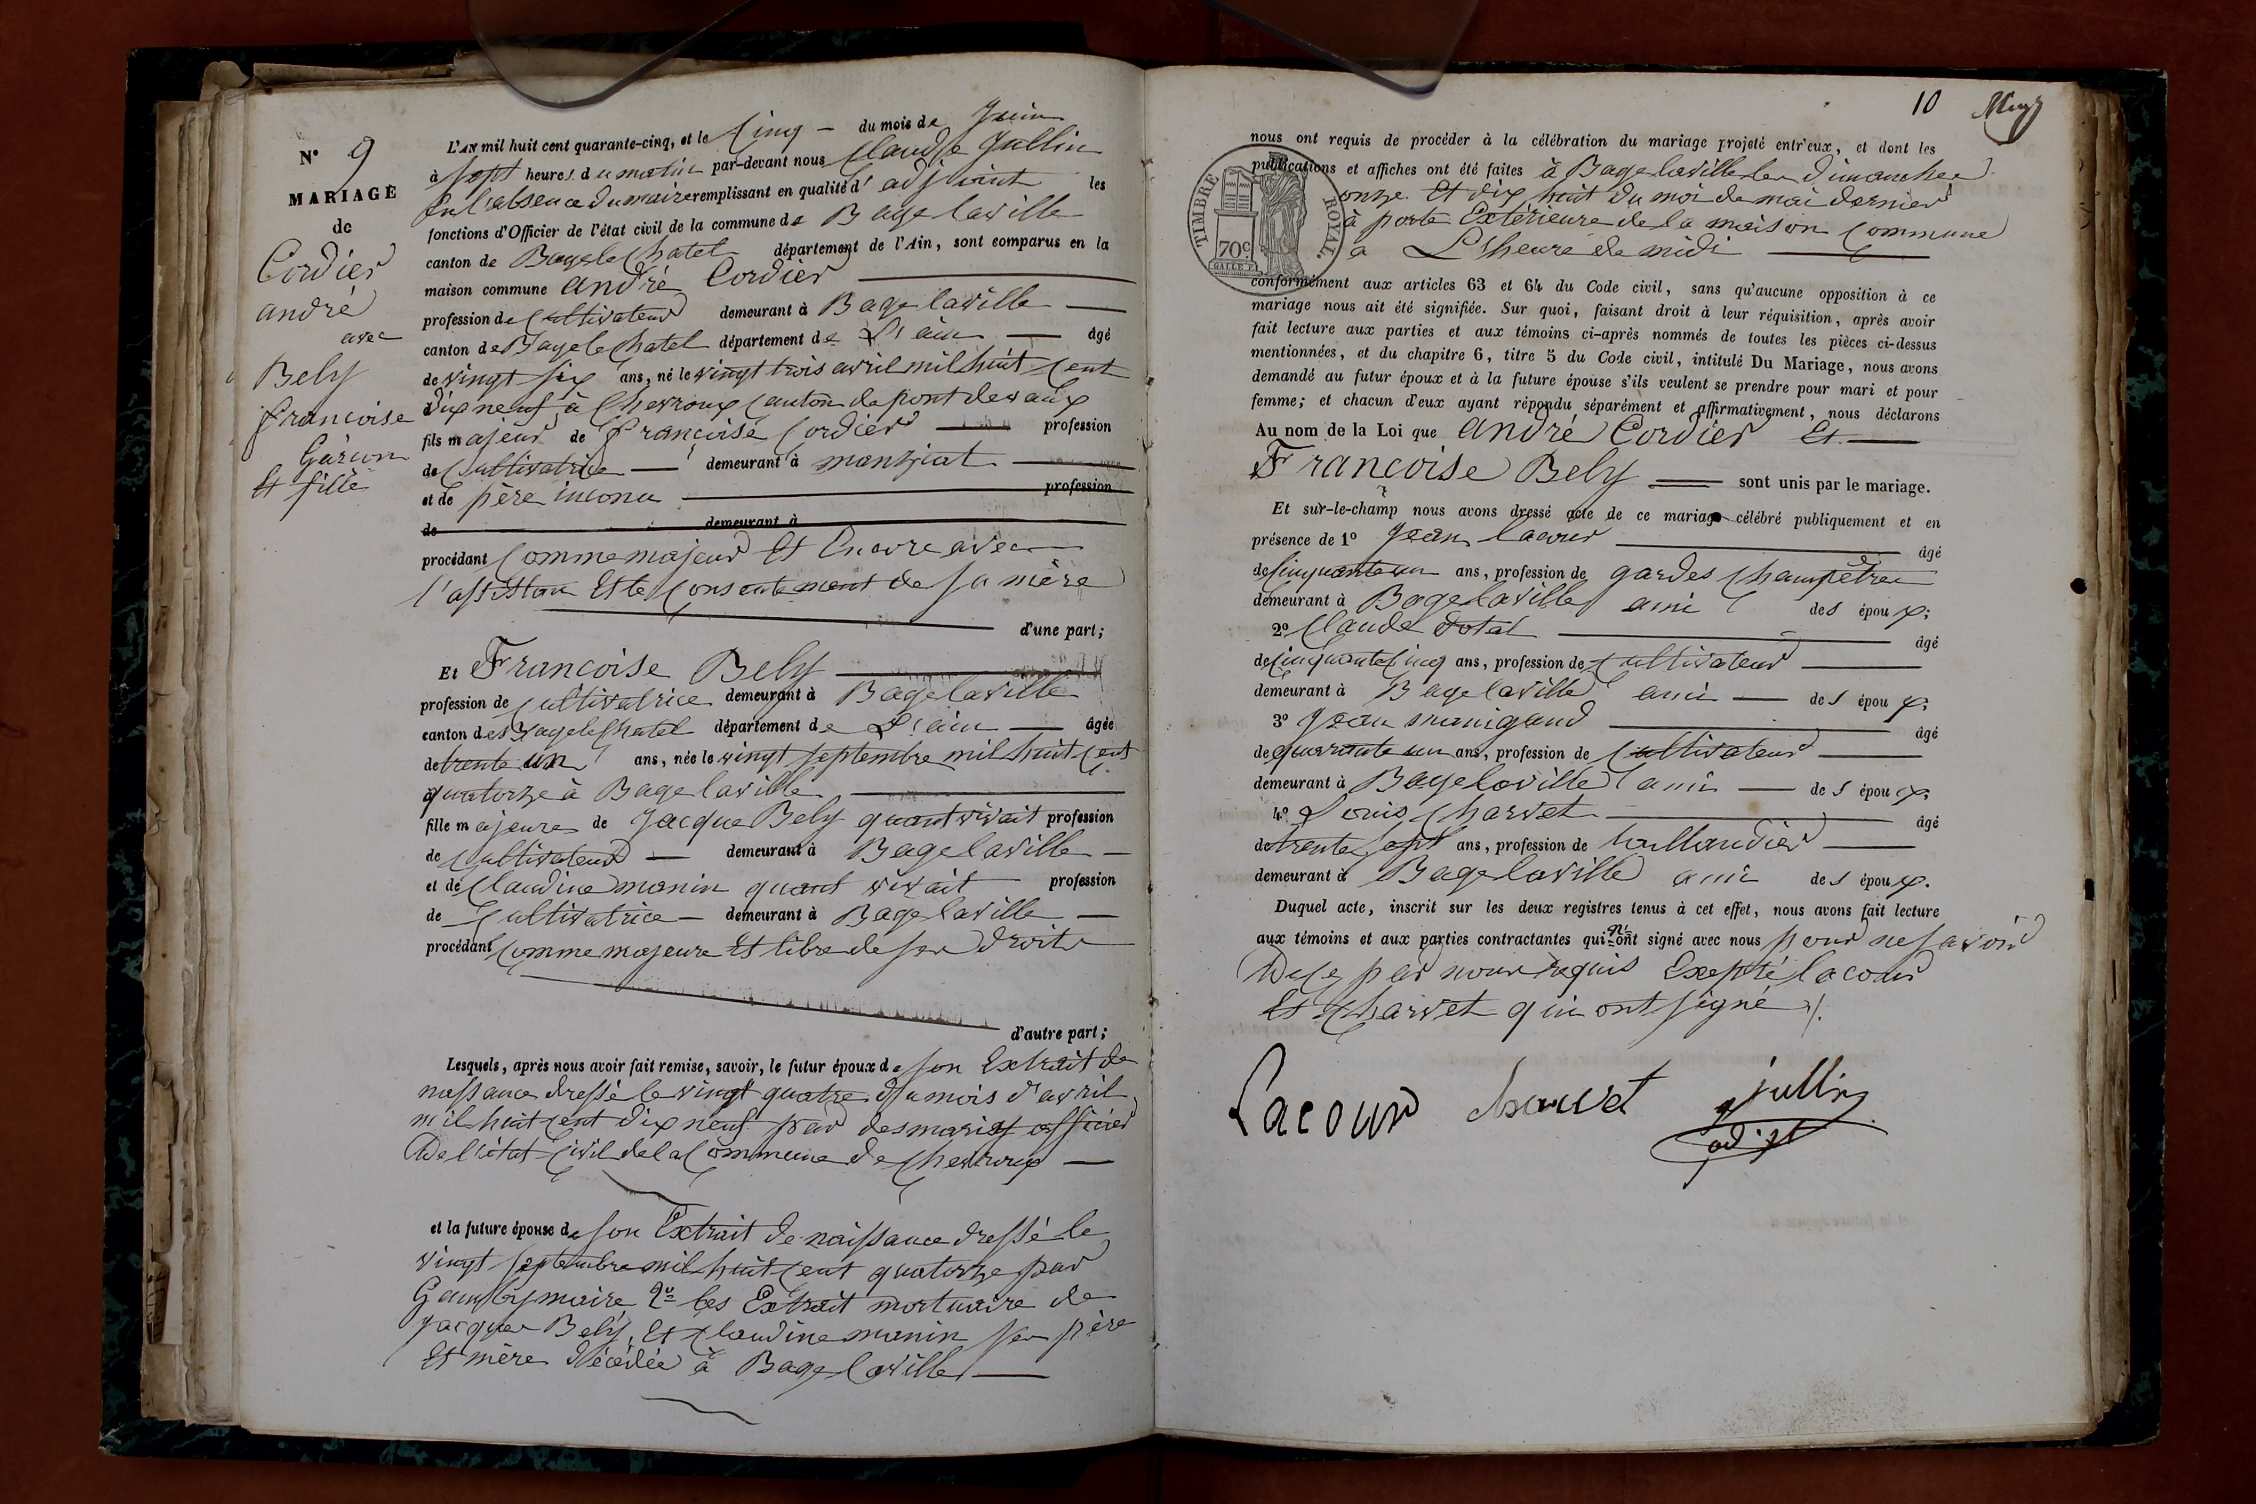 N° 9
MARIAGE
de
Cordier
andré
avec
Bely
francoise
Garcon
Et fille
L'AN mil huit cent quarante-cinq, et le Cinq du mois de Juin
à sept heures du matin par-devant nous Claude Jullin
En l'absence du maire remplissant en qualité d' adjoint les
fonctions d'Officier de l'état civil de la commune de Bage laville
canton de Bage le Chatel département de l'Ain, sont comparus en la
maison commune andré Cordier
profession de Cultivateur demeurant à Bage laville
canton de Bage le Chatel département de L'ain âgé
de vingt six ans, né le vingt trois avril mil huit Cent
dix neuf à Chevroux Canton de pont de vaux
fils majeur de francoise Cordier profession
de Cultivatrice demeurant à manziat
et de père inconu profession
de demeurant à
procédant Comme majeur Et Encore avec
l'assistan Et le Consentement de sa mère
d'une part;
Et Francoise Bely
profession de Cultivatrice demeurant à Bage laville
canton de Bage le Chatel département de L'ain âgée
de trente un ans, née le vingt septembre mil huit Cent
quatorze à Bage laville
fille majeure de Jacque Bely quant vivait profession
de Cultivateur demeurant à Bage laville
et de Claudine manin quant vivait profession
de Cultivatrice demeurant à Bage laville
procédant Comme majeure Et libre de ses droits
d'autre part;
Lesquels, après nous avoir fait remise, savoir, le futur époux de son Extrait de
nessance dressé le vingt quatre du mois d'avril
mil huit Cent dix neuf par desmaris officier
De l'état Civil de la Commune de Chevroux
et la future épouse de son Extrait de naissance dressé le
vingt septembre mil huit Cent quatorze par
maire 2° les Extrait mortuaire de
Jacques Bely, Et Claudine manin ses père
Et mère décédée à Bage laville
10
nous ont requis de procéder à la célébration du mariage projeté entr'eux, et dont les
publications et affiches ont été faites à Bage laville les dimanches
onze Et dix huit du moi de mai dernier
à porte Extérieure de la maison Commune
a L'heure de midi
TIMBRE ROYAL.
70 c.
conformément aux articles 63 et 64 du Code civil, sans qu'aucune opposition à ce
mariage nous ait été signifiée. Sur quoi, faisant droit à leur réquisition, après avoir
fait lecture aux parties et aux témoins ci-après nommés de toutes les pièces ci-dessus
mentionnées, et du chapitre 6, titre 5 du Code civil, intitulé Du Mariage, nous avons
demandé au futur époux et à la future épouse s'ils veulent se prendre pour mari et pour
femme; et chacun d'eux ayant répondu séparément et affirmativement, nous déclarons
Au nom de la Loi que andré Cordier Et
Francoise Bely sont unis par le mariage.
Et sur-le-champ nous avons dressé acte de ce mariage célébré publiquement et en
présence de 1° Jean lacour âgé
de Cinquante un ans, profession de gardes Champêtre
demeurant à Bage laville ami des époux;
2° Claude dotal âgé
de Cinquante Cinq ans, profession de Cultivateur
demeurant à Bage laville ami des époux;
3° Jean manigand âgé
de quarante un ans, profession de Cultivateur
demeurant à Bage laville ami des époux;
4° Louis Charvet âgé
de trente sept ans, profession de taillandier
demeurant à Bage laville ami des époux.
Duquel acte, inscrit sur les deux registres tenus à cet effet, nous avons fait lecture
aux témoins et aux parties contractantes qui n'ont signé avec nous pour ne savoir
De ce par nous requis Exepté lacour
Et Charvet qui ont signé
Lacour charvet jullin
adjt